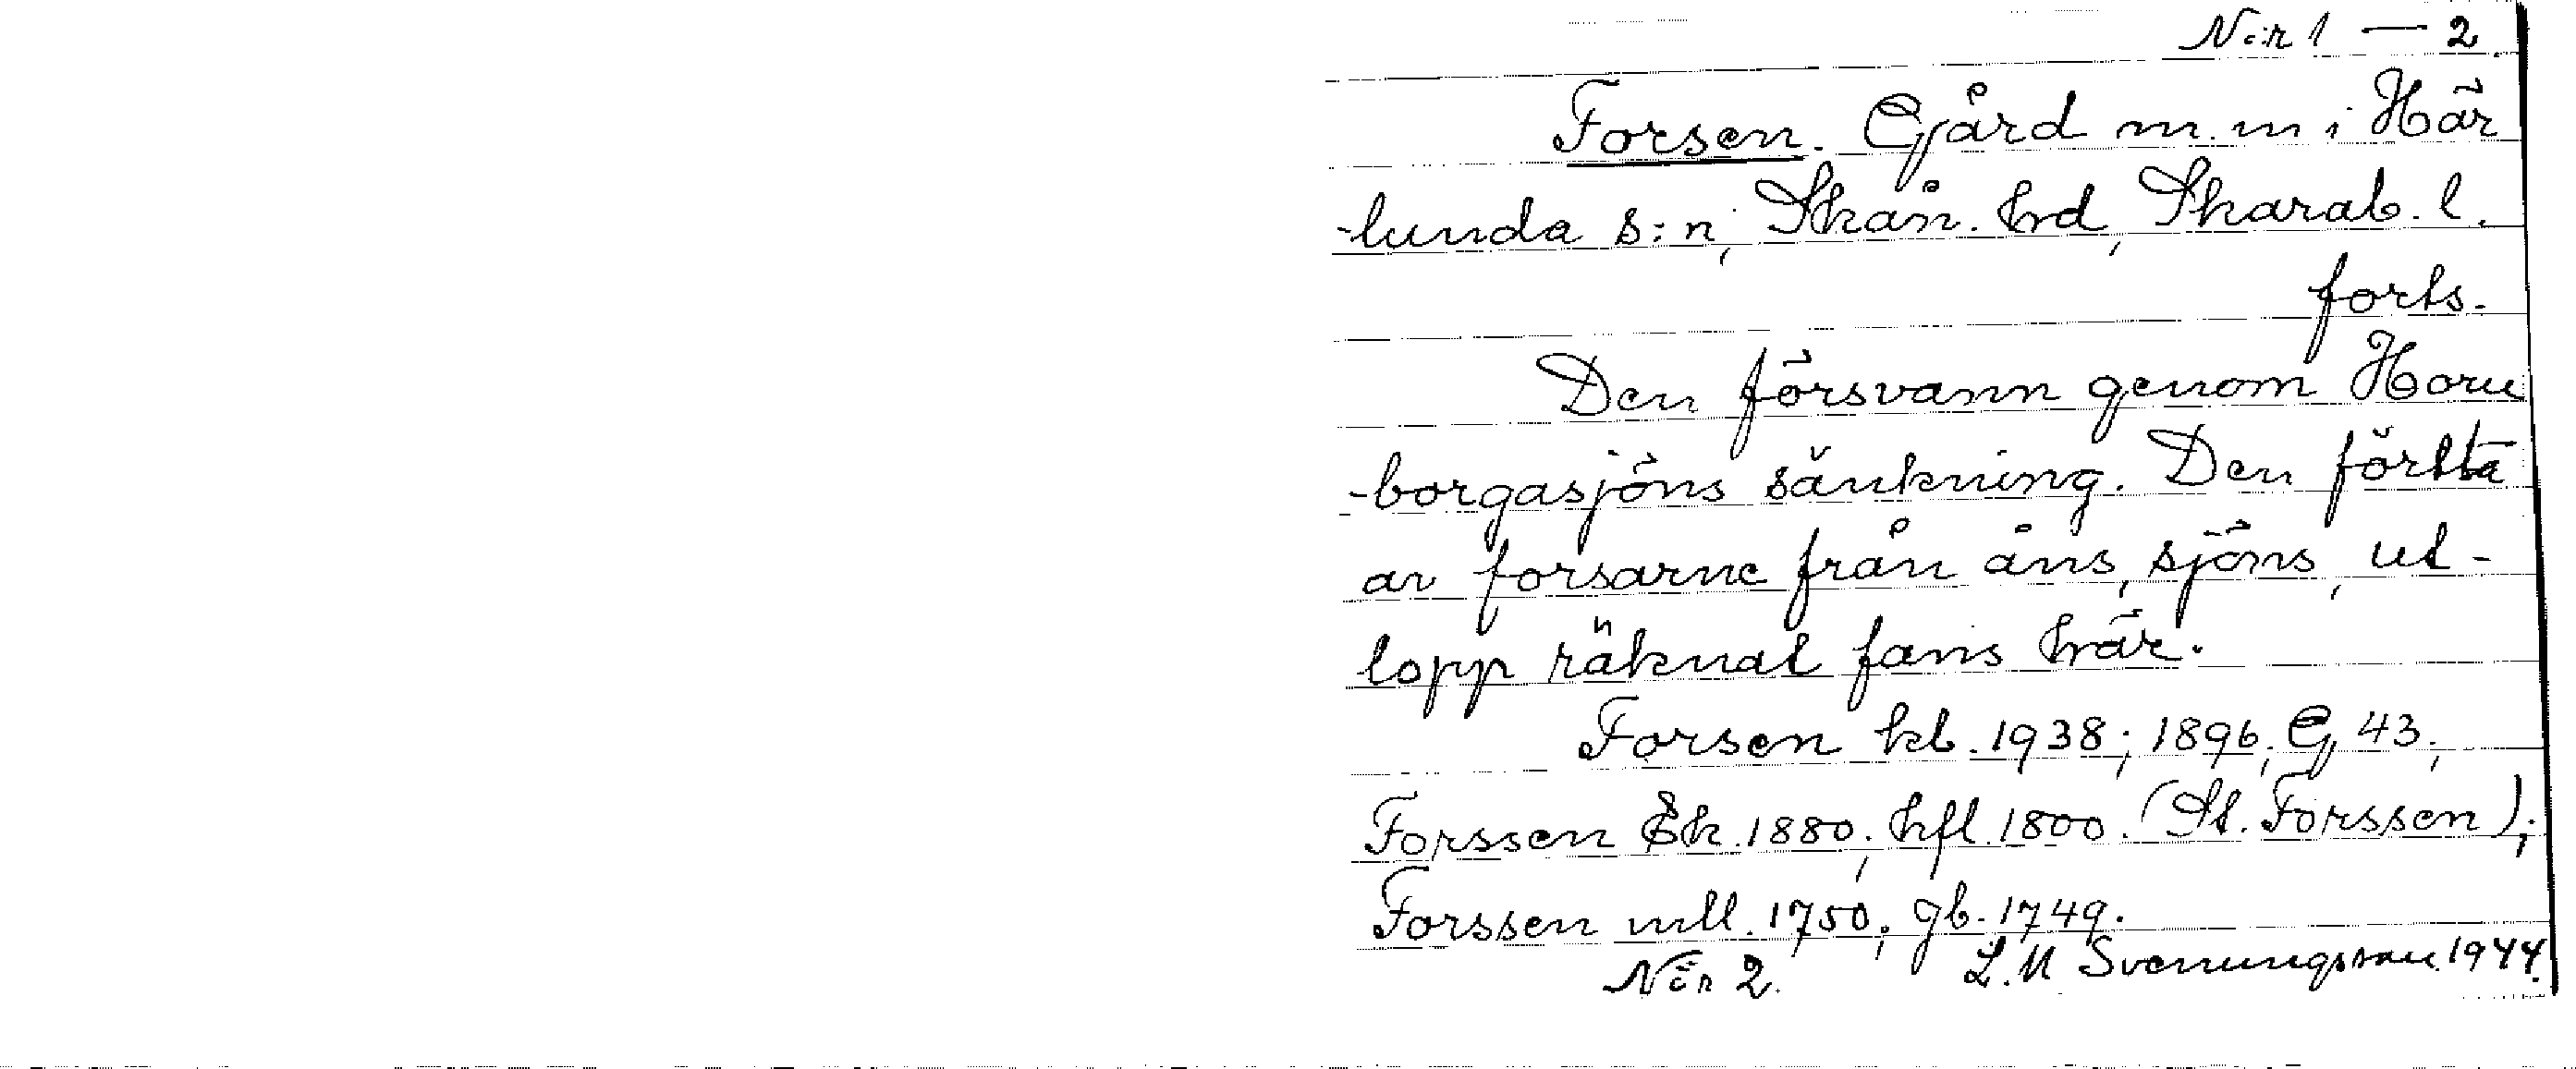 N:r 1 — 2.
Forsen. Gård m.m i Här
-lunda s:n, Skån. hrd, Skarab. l.
forts.
Den försvann genom Horn
-borgasjöns sänkning. Den första
av forsarne från åns, sjöns, ut-
lopp räknat fans här.
Forsen kb. 1938; 1896, G 43,
Forssen Ek. 1880; hfl. 1800. (St. Forssen);
Forssen mll. 1750; gb. 1749.
N:r 2. L.M Svenungsson 1944.